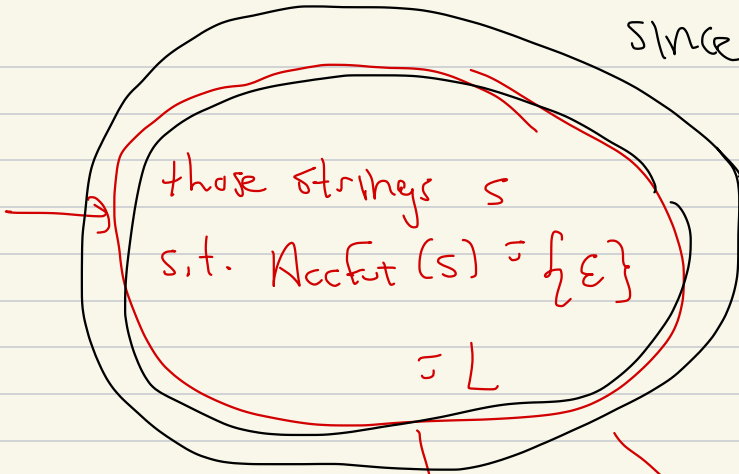 since
those strings s
s.t. AccFut (s) = {ε}
= L